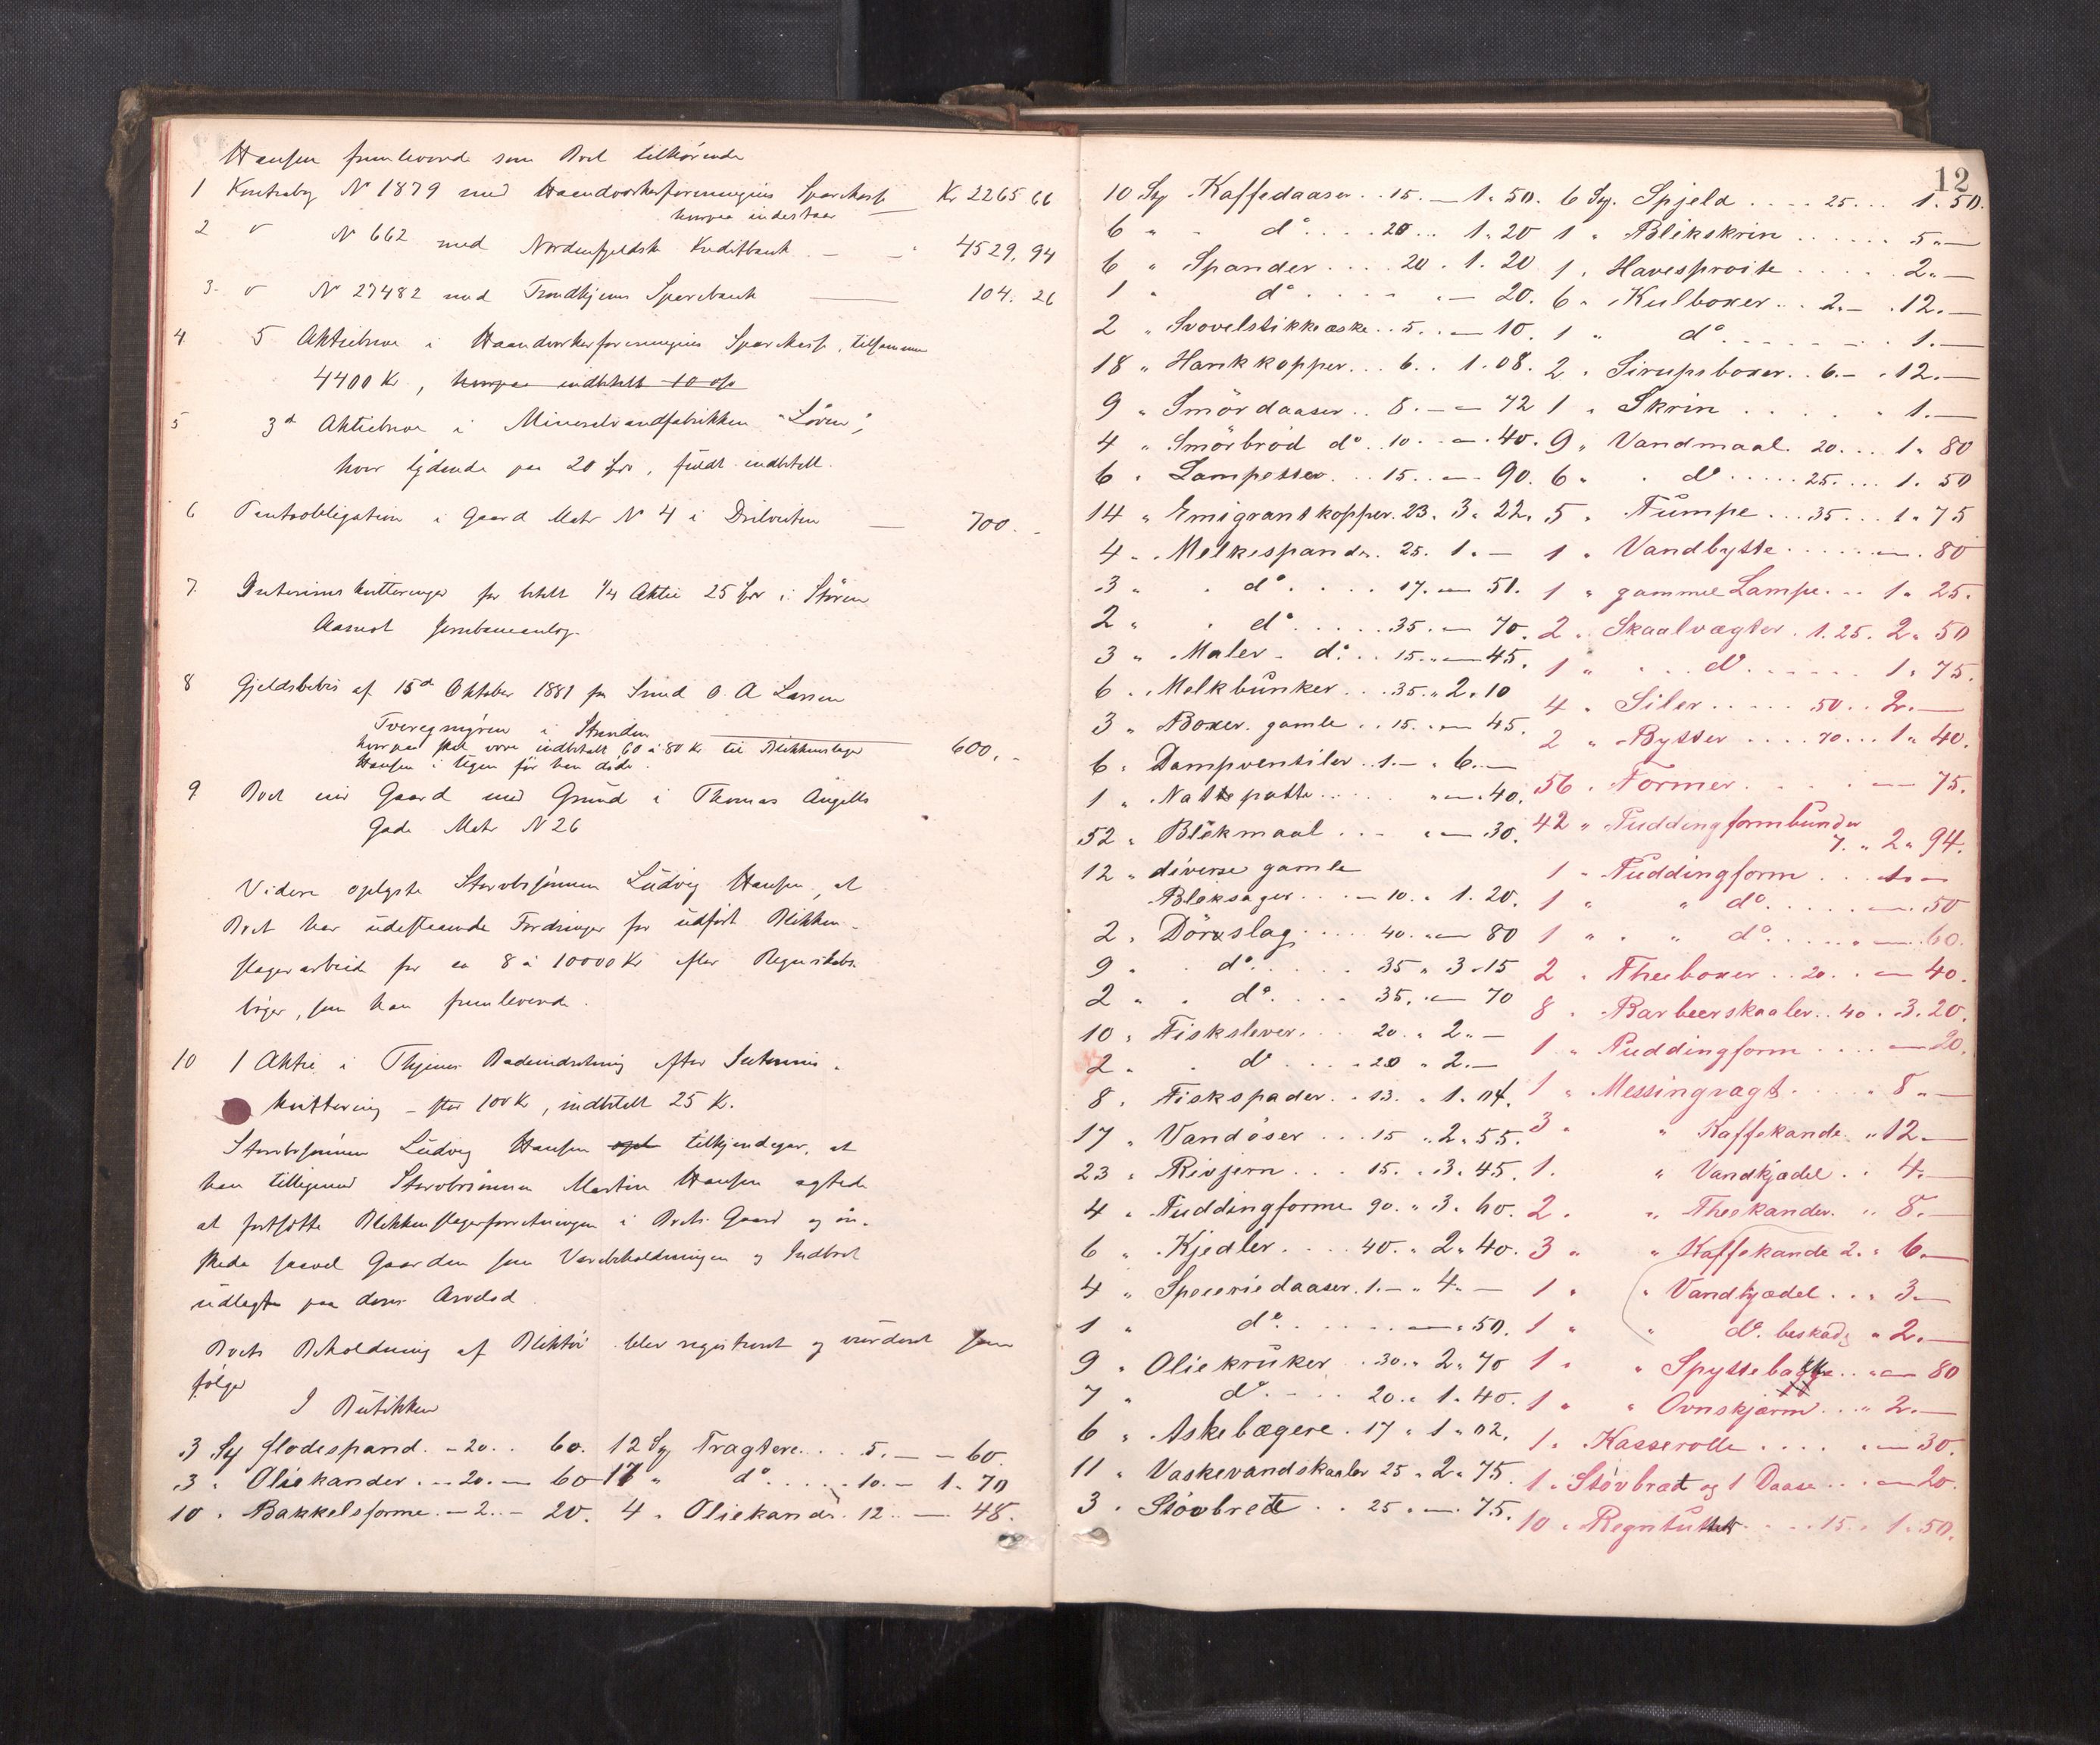 Hansen fremleverede som Boet tilhörende
1 Kontrabog N 1879 med Haandværkerforeningens Sparekasse Kr 2265 66
hvorpaa indestaar
2 " N 662 med Nordenfjeldske Kreditbank - - 4529,94
3 " N 27482 med Trondhjems Sparebank 104. 26
4 5 Aktiebreve i Haandværkerforeningens Sparekasse, tilsammen
4400 Kr, hvorpaa indbetalt 10 %
5 3de Aktiebreve i Mineralvandfabrikken "Löven",
hver lydende paa 20 Kr, fuldt indbetalt.
6 Pantobligation i Gaard Matr N 4 i Ihlevolden 700.-
7. Interimskvitteringer for betalt 1/4 Aktie 25 Kr i Stören
Aamot Jernbaneanlæg.
8 Gjeldsbevis af 15de Oktober 1881 fra Smed O. A. Larsen
i Stranden
hvorpaa skal være indbetalt 60 à 80 Kr til Blikkenslager 600,-
Hansen i Ugen för han döde.
9 Boet eier Gaard med Grund i Thomas Angells
Gade Matr N 26
Videre oplyste Stervbosönnen Ludvig Hansen, at
Boet har udestaaende Fordringer for udfört Blikken-
slagerarbeide for ca 8 à 10000 Kr efter Regnskabs-
böger, som han fremleverede.
10 1 Aktie i Thjems Badeindretning efter Interims-
kvittering - stor 100 Kr, indbetalt 25 K.
Stervbosönnen Ludvig Hansen opl tilkjendegav, at
han tilligemed Stervbosönnen Martin Hansen agtede
at fortsætte Blikkenslagerforretningen i Boets Gaard og ön-
skede saavel Gaarden som Varebeholdningen og Indboet
udlagte paa deres Arvelod.
Boets Beholdning af Bliktöi blev registreret og vurderet som
fölger
I Butikken
3 Stk Flödespand. - 20.. 60. 12 Stk Tragtere... 5. - - 60.
3 " Oliekander. .. 20. - 60 17 " do ..... 10. - 1. 70
10 " Bakkelsforme. - 2.. - 20. 4 " Oliekandr. 12.. - 48.
12
10 Stk Kaffedaaser .. 15. - 1. 50. 6 Stk. Spjeld .... 25... 1. 50.
6 " " do .... 20... 1. 20 1 " Blikskrin ...... 5. -
6 " Spander .... 20. 1. 20 1 " Havesproite ..... 2. -
1 " do ..... - 20. 6 " Kulboxer .. 2. - 12. -
2 " Svovelstikkeæske .. 5... - 10. 1 " do ....... 1. -
18 " Hankkopper... 6.. 1. 08. 2 " Sirupsboxer .. 6. - 12. -
9 " Smördaaser .. 8. - - 72 1 " Skrin ...... 1. -
4 " Smörbröd do .. 10 .. - 40. 9 " Vandmaal. 20... 1. 80
6 " Lampetter... 15... - 90. 6 " " do ..... 25.... 1. 50
14 " Emigrantkopper. 23. 3. 22. 5 " Pumpe ... 35... 1. 75
4 " Melkespande. 25. 1. - 1 " Vandbytte ..... - 80
3 " " do .... 17. - 51. 1 " gammel Lampe... 1. 25.
2 " " do .... 35. - 70. 2 " Skaalvægter. 1.25. 2. 50
3 " Maler- do ... 15. .. 45. 1 " .. do ...... 1. 75.
6 " Melkbunker... 35. " 2. 10 4 " Siler ..... 50.. 2. -
3 " Boxer. gamle .. 15. .. 45. 2 " Bytter .... 70... 1. 40.
6 " Dampventiler .. 1. - . 6. - 56 " Former ..... - 75.
1 " Nattepotte ..... - 40. 42 " Puddingformbunder
7. " 2. 94.
52 " Blikmaal .... - 30.
12 " diverse gamle 1 " Puddingform ... 1. -
Bliksager .... - 10. . 1. 20. 1 " " do ..... - 50
2 " Dörslag .... 40. - 80 1 " " " do ..... - 60.
9 " " do ..... 35 " 3. 15 2 " Theeboxer .. 20... - 40.
2 " " do .... 35. - 70 8 " Barbeerskaaler .. 40. . 3. 20.
10 " Fiskslever... 20. " 2. - 1 " Puddingform .... - 20.
2 " " do .... 20 " 2. - 1 " Messingvægt ..... 8. -
8 " Fiskspader.. 13. " 1. 04. 3 " " Kaffekande. " 12. -
17 " Vandöser ... 15 " 2. 55. 1. " Vandkjædel .. 4. -
23 " Rivjern ... 15. " 3. 45. 2. " Theekander. " 8. -
4 " Puddingforme 90. " 3. 60. 3 " " Kaffekande 2. " 6. -
6 " Kjedler .... 40. " 2. 40. 1 " " Vandkjædel ... 3. -
4 " Specerie daaser. 1. - " 4. - 1 " " do. beskadg " 2. -
1 " do ...... - 50. 1 " " Spyttebakke ... - 80
9 " Oliekruker .. 30. " 2. 70 1 " " Ovnskjærm ... 2. -
7 " do .... 20. " 1. 40. 1 " Kasserolle ..... - 30.
6 " Askebægere. 17 " 1. 02. 1 " Stövbræt og 1 Daase ... - 20.
11 " Vaskevandskaaler 25 " 2. 75. 10 " ..... 15. " 1. 50.
3 " Stövbrett .. 25. - 75.